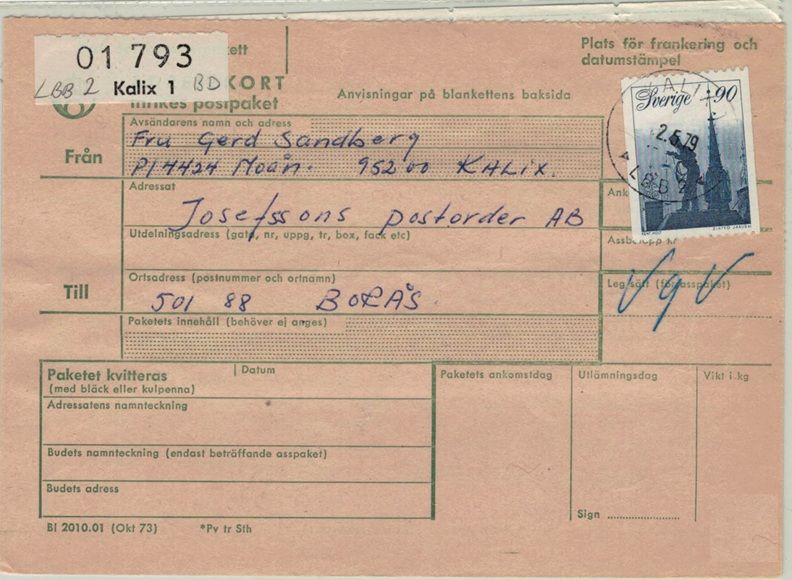 01 793
LBB 2 Kalix 1 BD
KORT
Inrikes postpaket
Anvisningar på blankettens baksida
Plats för frankering och
datumstämpel
Sverige 90
KALIX
2.5.79
LBB 2
Från
Avsändarens namn och adress
Fru Gerd Sandberg
Pl 4424 Moån. 952 00 KALIX.
Adressat
Josefssons postorder AB
Utdelningsadress (gata, nr, uppg, tr, box, fack etc)
Assbelopp kr
Till
Ortsadress (postnummer och ortnamn)
501 88 BORÅS.
Leg sätt (för asspaket)
Paketets innehåll (behöver ej anges)
Paketet kvitteras
(med bläck eller kulpenna)
Datum
Paketets ankomstdag
Utlämningsdag
Vikt i kg
Adressatens namnteckning
Budets namnteckning (endast beträffande asspaket)
Budets adress
Sign
Bl 2010.01 (Okt 73) *Pv tr Sth